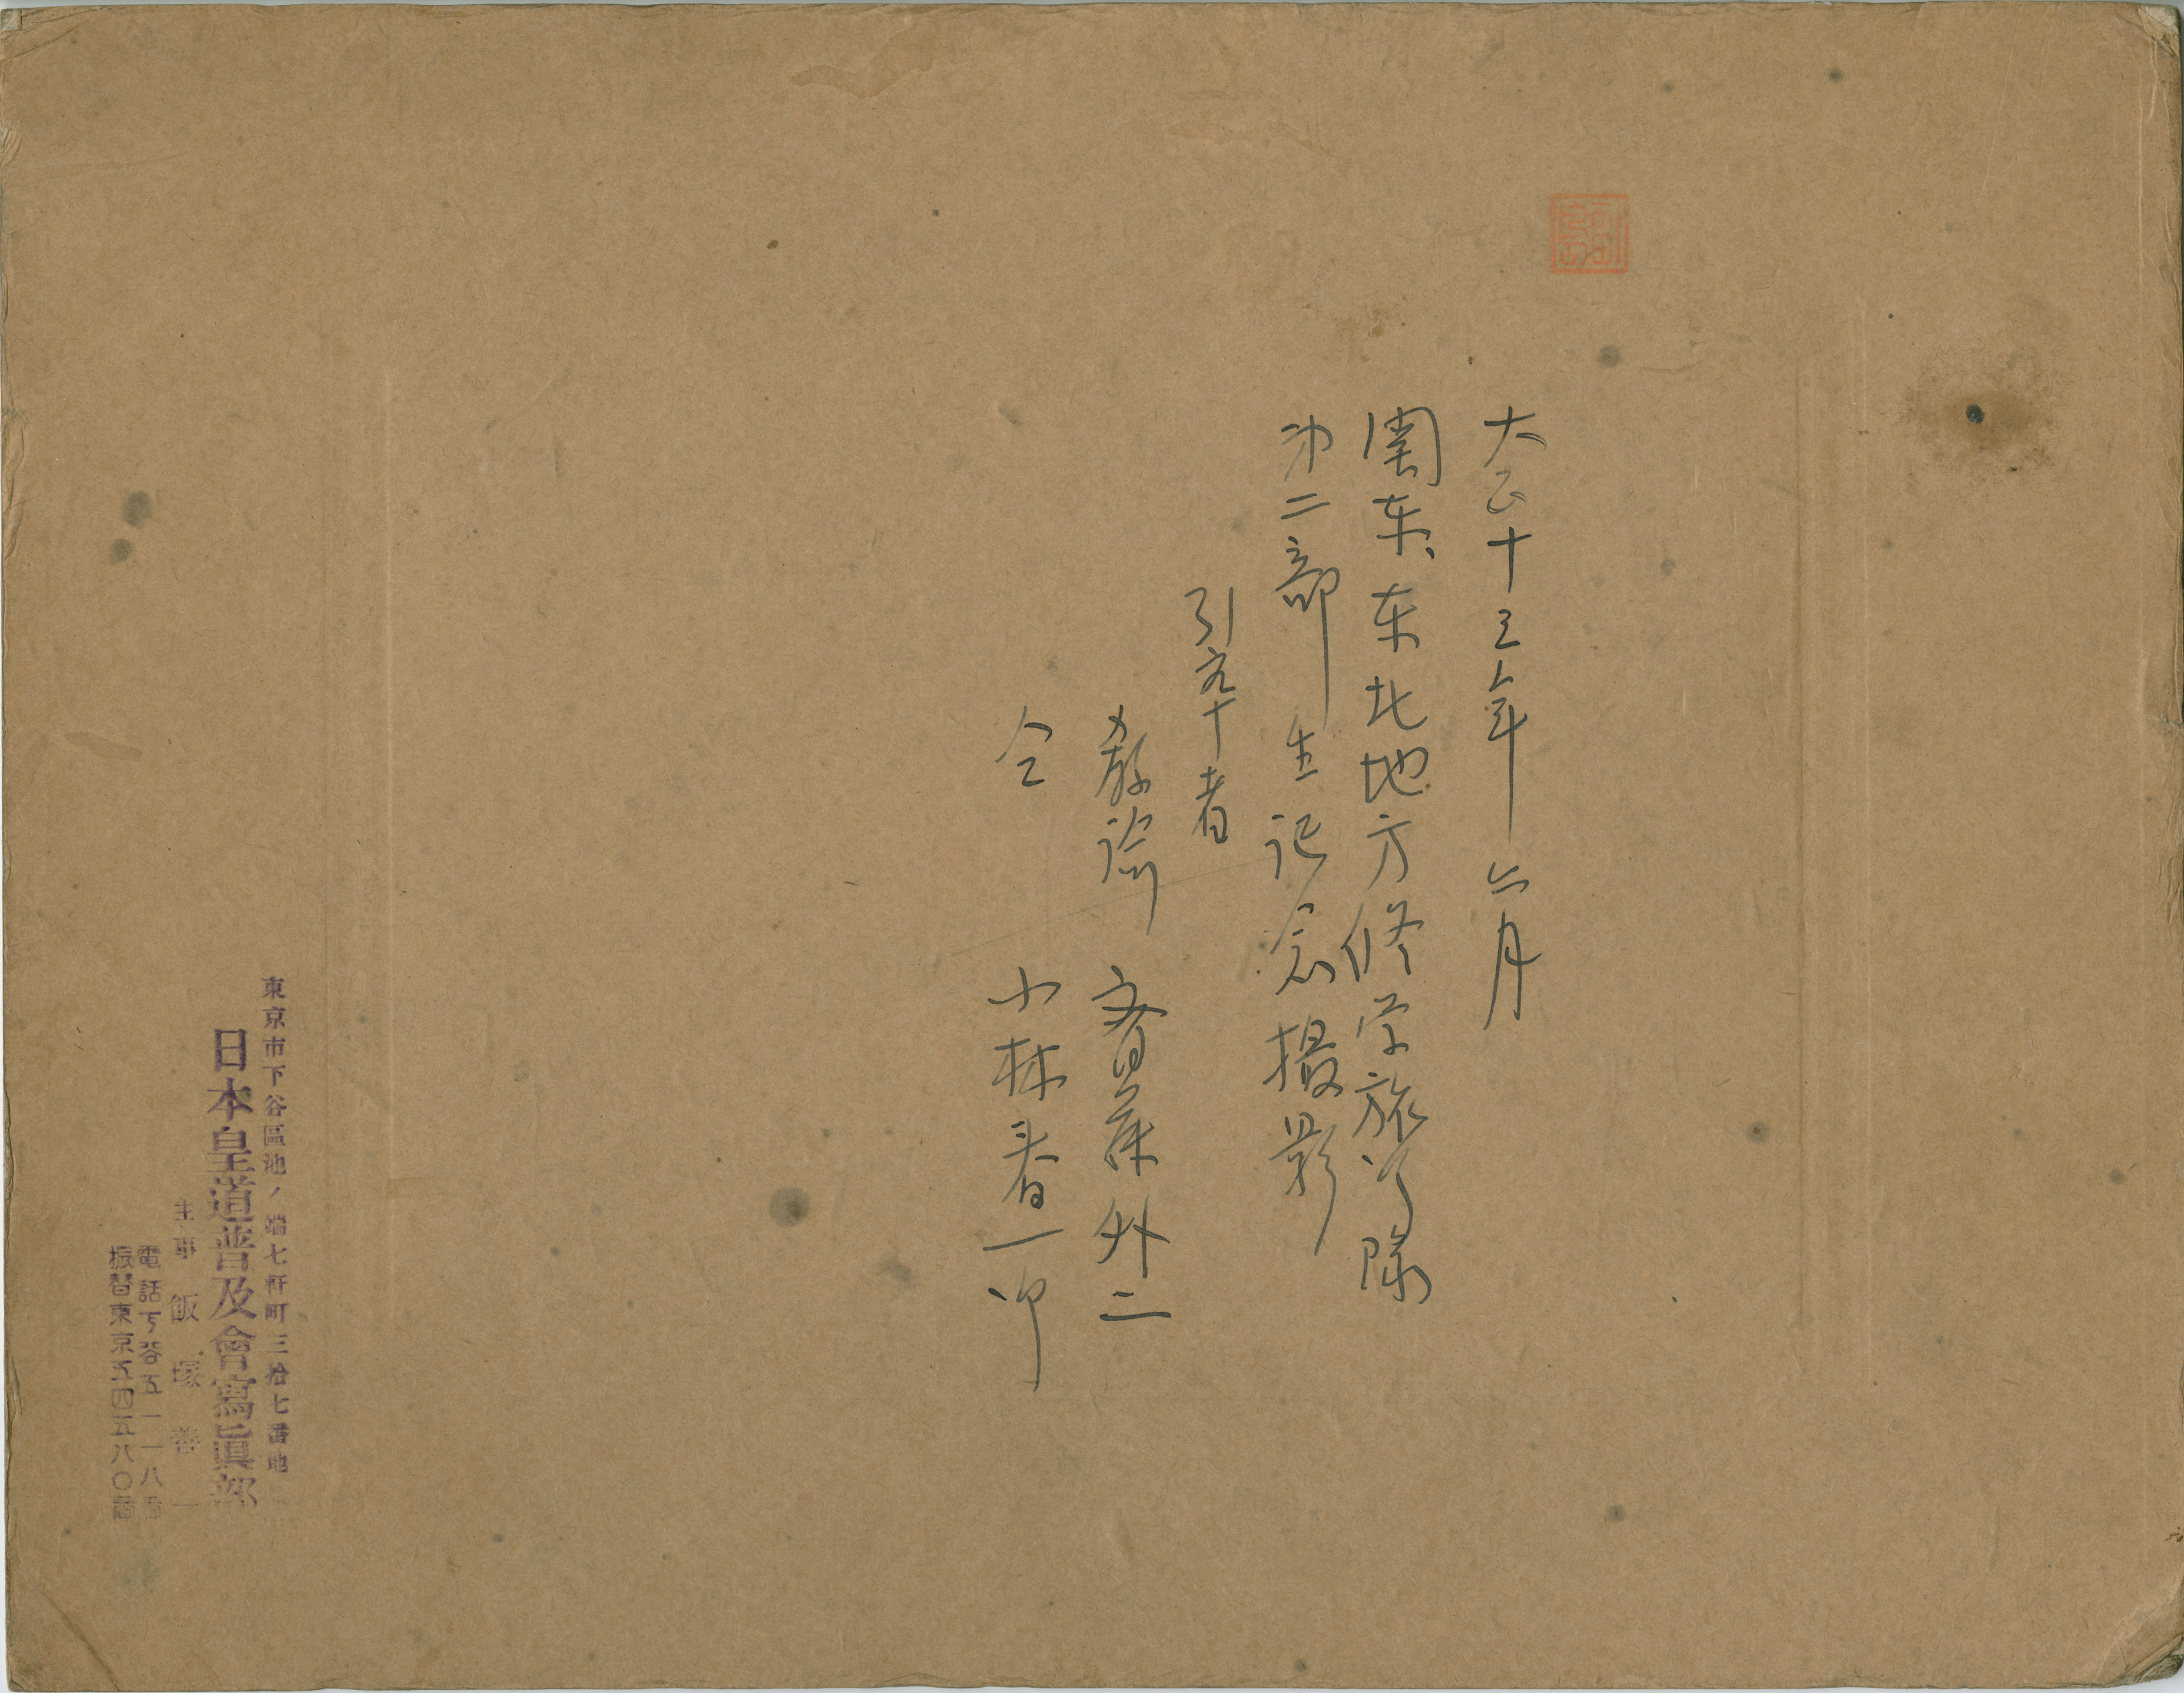 大正十三年 六月
関東、東北地方修学旅行隊
第二部生記念撮影
引率者
教諭 斎藤外二
仝 小林春一郎
東京市下谷區池ノ端七軒町三拾七番地
日本皇道普及會寫眞部
主事 飯塚善一
電話下谷五一一八番
振替東京五四五八〇番